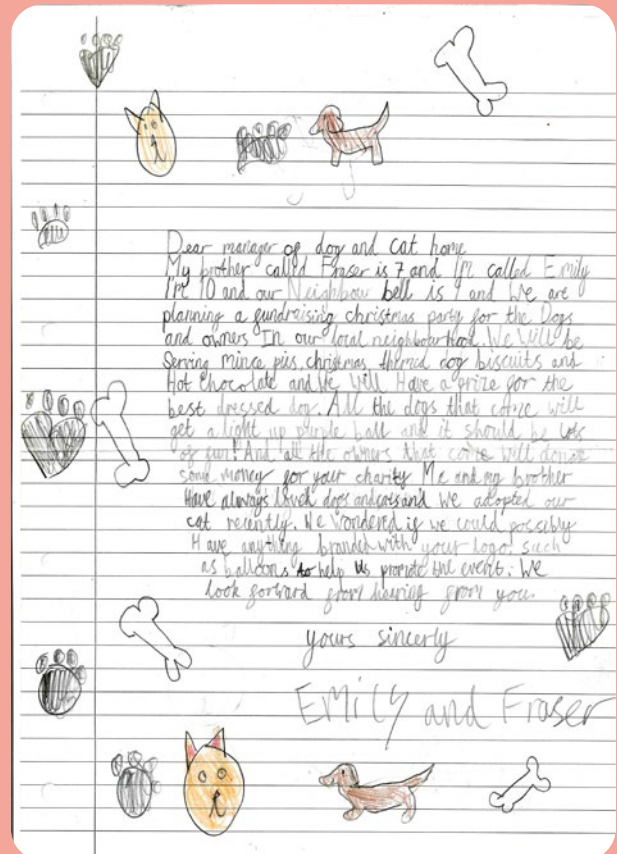 Dear manager of dog and cat home
My brother called Fraser is 7 and I'm called Emily
I'm 10 and our Neighbour bell is 9 and We are
planning a fundraising christmas party for the Dogs
and owners In our local neighbourhood. We will be
Serving mince pis, christmas themed dog biscuits and
Hot chocolate and We Will Have a prize for the
best dressed dog. All the dogs that come will
get a light up purple ball and it should be lots
of fun! And all the owners that come will donate
some money for your charity Me and my brother
Have always loved dogs and cats and we adopted our
cat recently. We wondered if we could possibly
Have anything branded with your logo such
as balloons to help us promote the event. We
look forward from hearing from you.
yours sincerly
Emily and Fraser